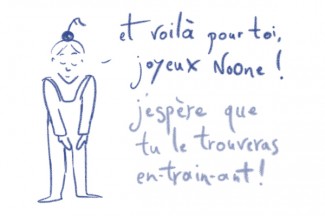 et voilà pour toi,
joyeux NoOne !
j'espère que
tu le trouveras
en-train-ant !